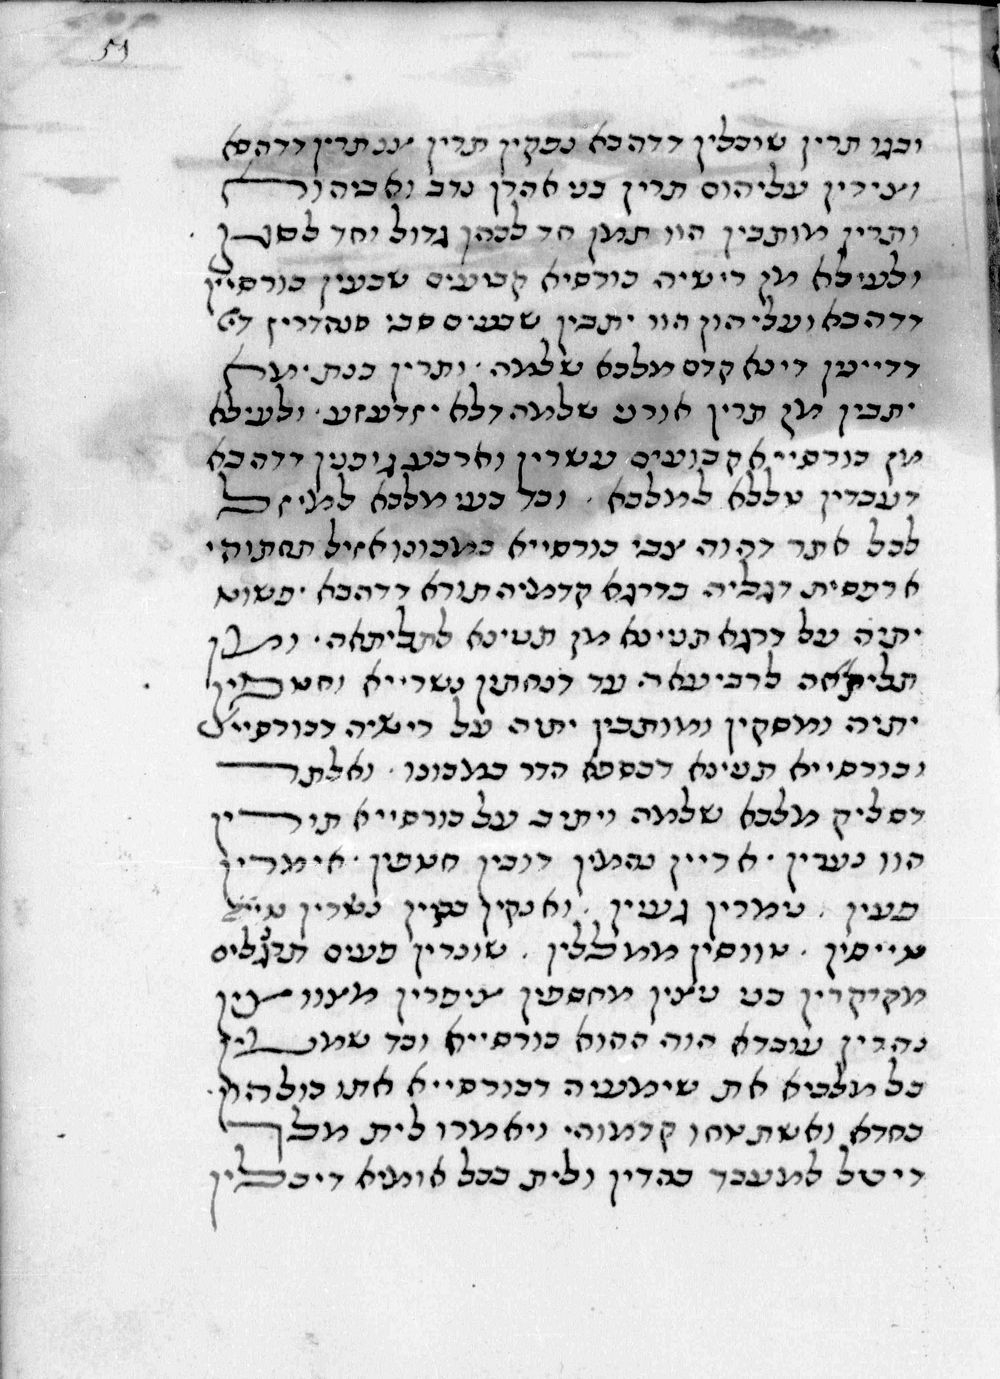 ובגו תרין שובלין דדהבא נפקין תרין צנתרין דדהבא
וצירין עליהום תרין בני אהרן נדב ואביהוא
ותרין מותבין הוו תמן חד לכהן גדול וחד לסגן
ולעילא מן רישיה כורסיא קבועים שבעין כורסיין
דדהבא ועליהון הוו יתבין שבעים סבי סנהדרין די
דדיינין דינא קדם מלכא שלמה ׳ ותרין בנת ימא
יתבין מן תרין אודני שלמה דלא יזדעזע ׳ ולעילא
מן כורסייא קבועים עשרין וארבע גופנין דדהבא
דעבדין טללא למלכא ׳ וכל בעי מלכא למיזל
לכל אתר דהוה צבי כורסייא במכונו אזיל תחתוהי
ארפסית רגליה בדרגא קדמיה תורא דדהבא ׳ פשוט
יתיה על דרגא תנינא מן תנינא לתליתאה ׳ ומן
תליתאה לרביעאה עד דנחתין נשרייא וחטפין
יתיה ומסקין ומותבין יתיה על רישיה דכורסייא
וכורסייא תנינא דכספא הדר במכונו ׳ ואלתר
דסליק מלכא שלמה ויתיב על כורסייא תורין
הוו געירין ׳ אריין נהמין דובין חטפין ׳ אימרין
פעין ׳ נימרין געיין ׳ ואנקין בכיין נשרין
טייסין ׳ טווסין ממללין ׳ שונרין פעים תרנגלים
מקרקרין בני נצין מחספין ציפרין מצווצין
נהדין עובדא הוה ההוא כורסייא וכד שמעין
כל מלכיא את שימעיה דכורסייא אתו כולהון ׳
כחדא ואשתטחו קדמוהי ויאמרו לית מלך
דיטל למעבד כהדין ולית בכל אומיא דיכלין